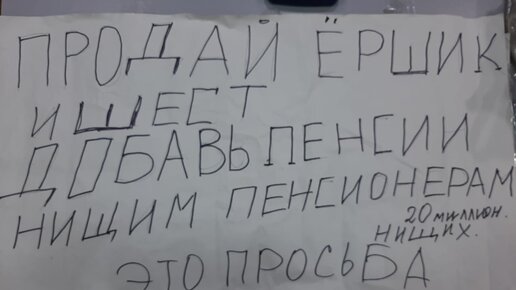 ПРОДАЙ ЁРШИК
И ШЕСТ
ДОБАВЬ ПЕНСИИ
НИЩИМ ПЕНСИОНЕРАМ
20 миллион.
НИЩИХ.
ЭТО ПРОСЬБА